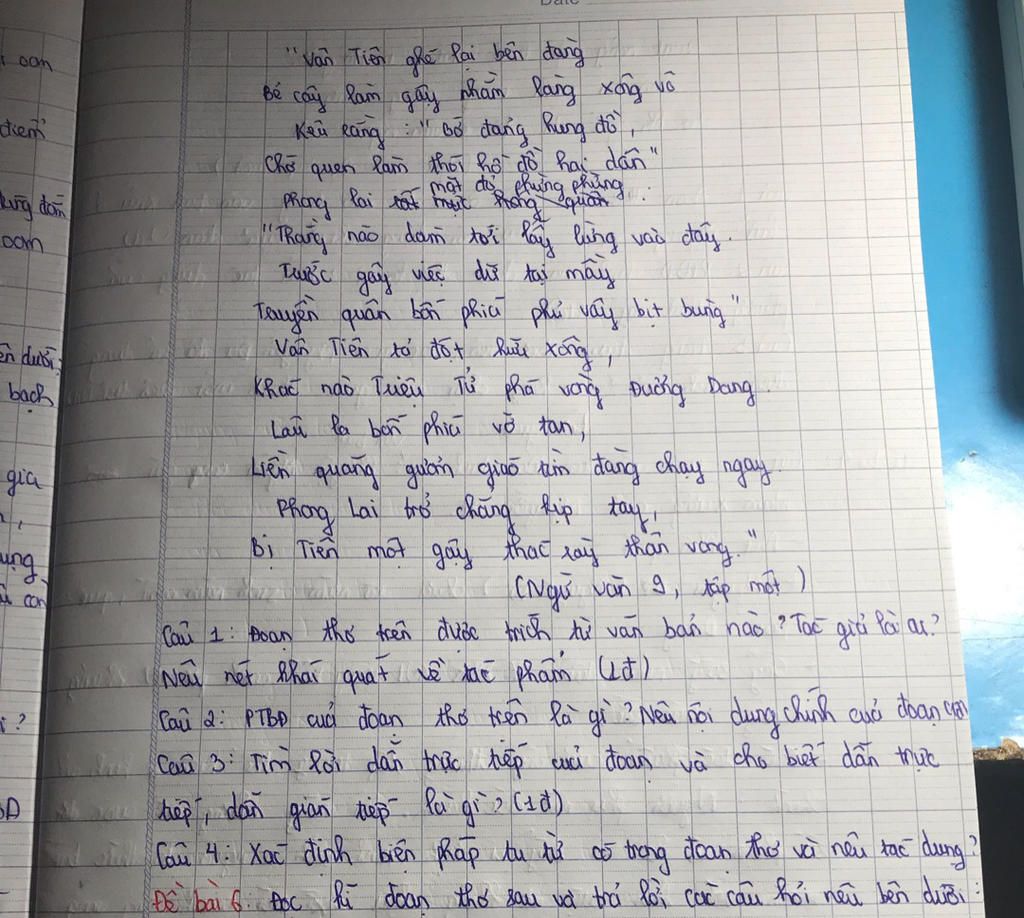 Date
"Vân Tiên ghé lại bên đàng
Bẻ cây làm gậy nhằm làng xông vô
Kêu rằng: "Bớ đảng hung đồ,
Chớ quen làm thói hồ đồ hại dân"
mặt đỏ phừng phừng
Phong Lai
"Thằng nào dám tới lẫy lừng vào đây.
Trước gây việc dữ tại mầy
Truyền quân bốn phía phủ vây bịt bùng"
Vân Tiên tả đột hữu xông,
Khác nào Triệu Tử phá vòng Đương Dang.
Lâu la bốn phía vỡ tan,
Liền quăng gươm giáo tìm đàng chạy ngay.
Phong Lai trở chẳng kịp tay,
Bị Tiên một gậy thác rày thân vong."
(Ngữ văn 9, tập một)
Câu 1: Đoạn thơ trên được trích từ văn bản nào? Tác giả là ai?
Nêu nét khái quát về tác phẩm (1đ)
Câu 2: PTBĐ của đoạn thơ trên là gì? Nêu nội dung chính của đoạn
Câu 3: Tìm lời dẫn trực tiếp của đoạn và cho biết dẫn trực
tiếp, dẫn gián tiếp là gì? (1đ)
Câu 4: Xác định biện pháp tu từ có trong đoạn thơ và nêu tác dụng?
Đề bài 6: Đọc kĩ đoạn thơ sau và trả lời các câu hỏi nêu bên dưới: